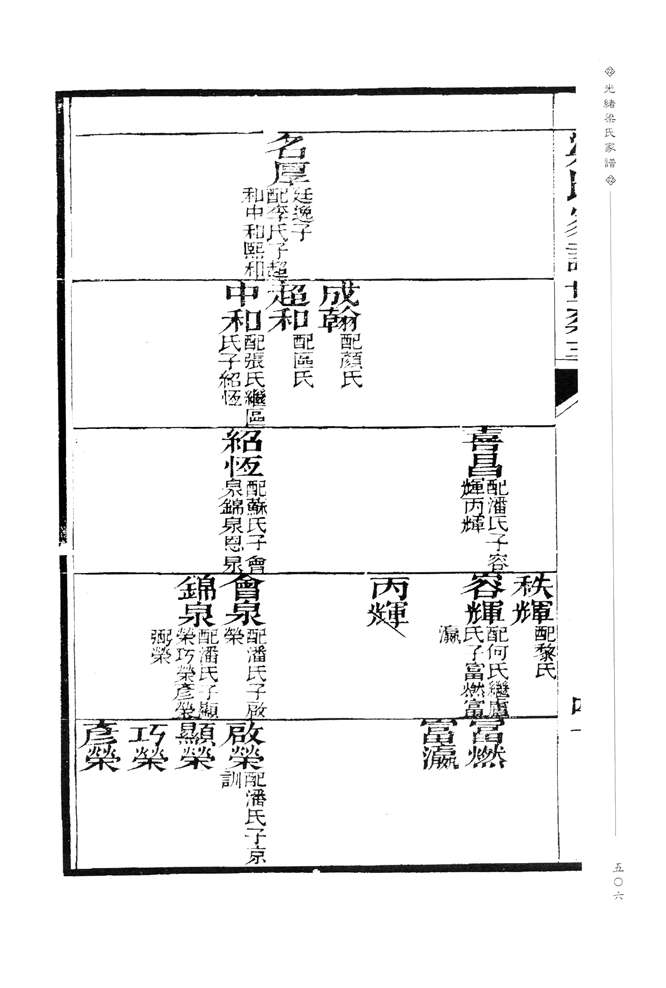 光緒梁氏家譜
氏家譜世系三
名厚
廷逸子
配李氏子超
和中和熙和
成翰
配顏氏
超和
配區氏
中和
配張氏繼區
氏子紹恆
喜昌
配潘氏子容
輝丙輝
紹恆
配蘇氏子會
泉錦泉恩泉
秩輝
配黎氏
容輝
配何氏繼盧
氏子富燃富
瀛
丙輝
會泉
配潘氏子啟
榮
錦泉
配潘氏子顯
榮巧榮彥榮
弼榮
富燃
富瀛
啟榮
配潘氏子京
訓
顯榮
巧榮
彥榮
五〇六